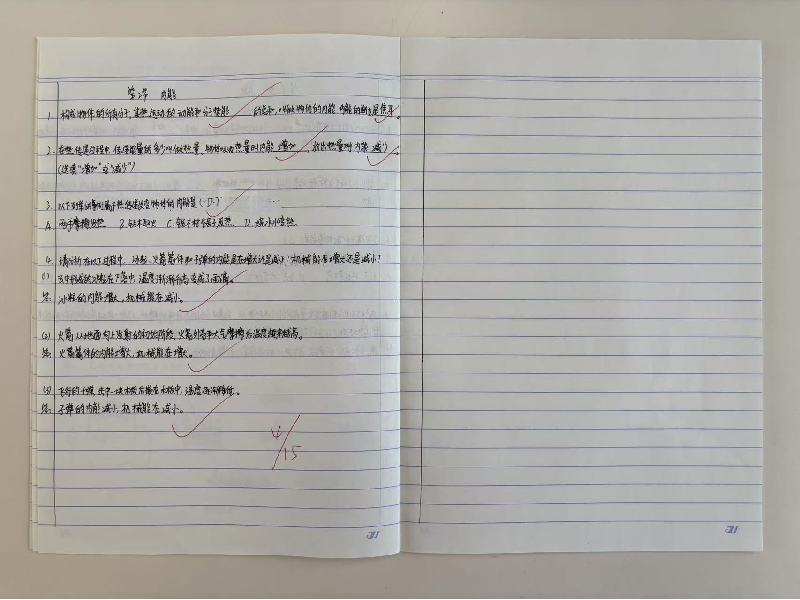 第2节 内能
1. 构成物体的所有分子,其热运动的动能和分子势能 的总和,叫做物体的内能,内能的单位是焦耳。
2. 在热传递过程中,传递能量的多少叫做热量,物体吸收热量时内能增加,放出热量时内能减少
(选填"增加"或"减少")
3. 以下列举的事例属于热传递改变物体的内能是(D)
A. 两手摩擦发热 B. 钻木取火 C. 反复 发热 D. 烧水 热
4. 请分析在以下过程中,冰粒、火箭箭体和子弹的内能是在增大还是减小?机械能在增大还是减小?
(1) 的冰粒在下落中,温度渐渐升高变成了雨滴。
答:冰粒的内能增大,机械能在减小。
(2) 火箭从地面向上发射的初始阶段,火箭外壳和大气摩擦后温度越来越高。
答:火箭箭体的内能增大,机械能在增大。
(3) 飞行的子弹,击中一块木板后嵌在木板中,温度逐渐降低。
答:子弹的内能减小,机械能在减小。
4/15